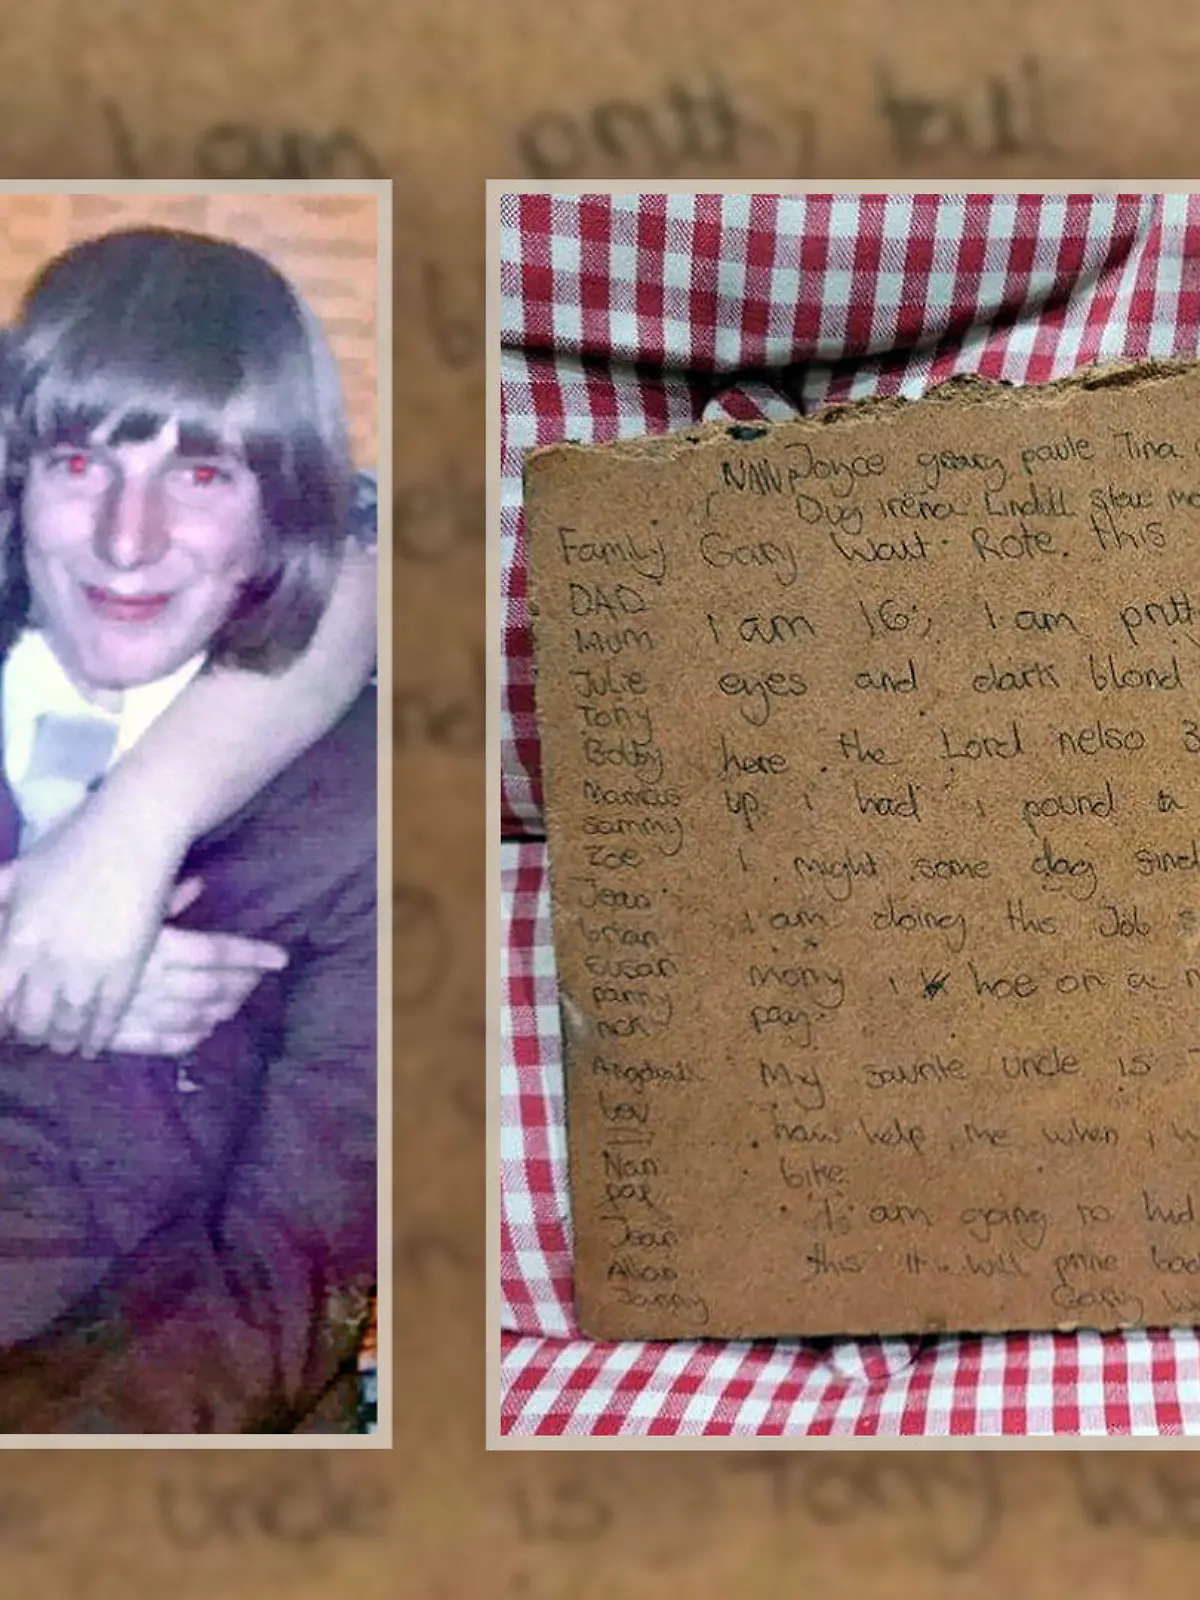 I am prtty tall
NAN Joyce geary paule Tina
Dug irena Lindill stev me
Family Gary Wait Rote. this
DAD
MUM i am 16; I am prtt
Julie eyes and dark blond
Tony
Bobby here the Lord nelso 3
Marcus up i had 1 pound a
Sammy
Zoe I might some day sind
Jean i am doing this Job s
brian
Susan mony i hoe on a m
panny pay.
nick
My faunle uncle is T
Lou haw help me when i w
Jill
Nan bike
pap
Joan is am going to hid
Allan this it will prine bac
Janny Gary W
uncle is Tony